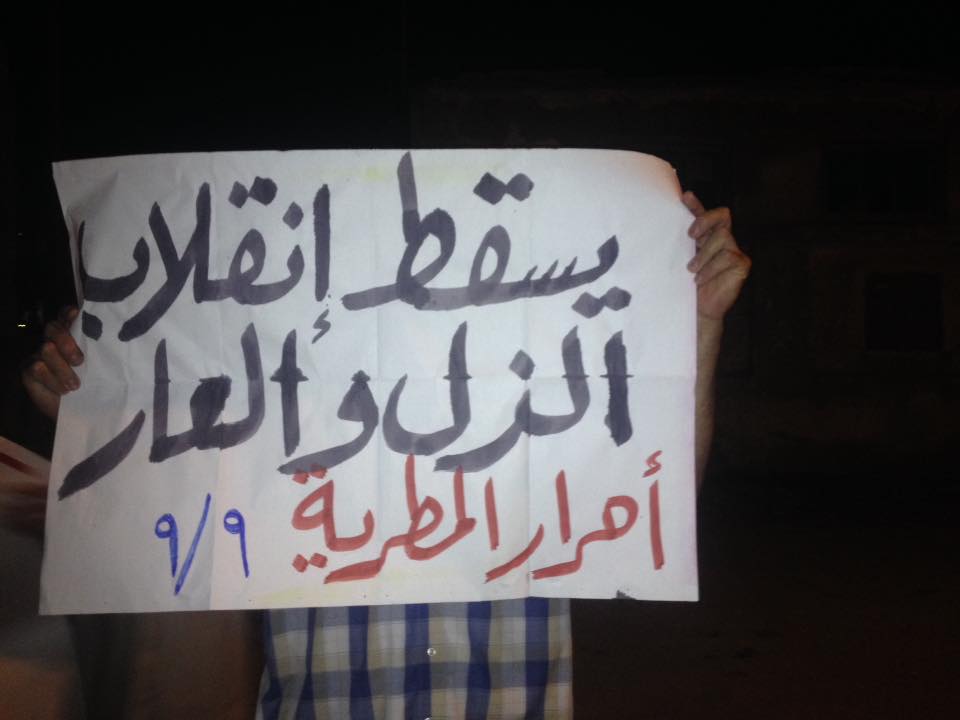 يسقط إنقلاب
الزل وألعار
أحرار المطرية ٩/٩